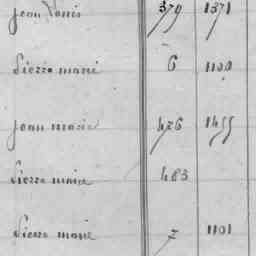 Jean Louis 379 1371
Pierre marie 6 1100
Jean marie 476 1455
Pierre marie 483
Pierre marie 7 1101